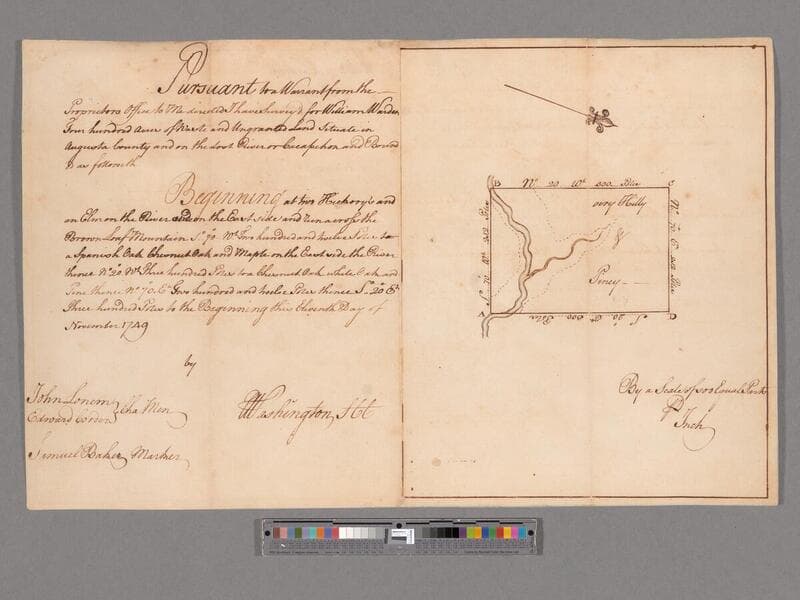 Pursuant to a Warrant from the
Proprietors Office to Me directed I have Survey'd for William Warden
Four hundred Acres of Waste and Ungranted Land Situate in
Augusta County and on the Lost River or Cacapehon and Bound
d as followeth
Beginning at two Hickory's and
an Elm on the River side on the East side and run across the
Brown Loaf Mountain So. 70 Wt. Two hundred and twelve Poles to
a Spanish Oak Chesnut Oak and Maple on the East side the River
thence No. 20 Wt. Three hundred Poles to a Chesnut Oak white Oak and
Pine thence No. 70 Et. Two hundred and twelve Poles thence So. 20 Et.
three hundred Poles to the Beginning this Eleventh Day of
November 1749
by
John Lonem
Edward Corder
Cha Men
Washington S
Samuel Baker Marker
B
No. 20 Wt. 300 Poles
C
very Hilly
So. 70 Wt. 212 Poles
No. 70 E 212 Poles
Piney
A
So. 20 Et. 300 Poles
D
By a Scale of 100 Equal Parts
P
Inch